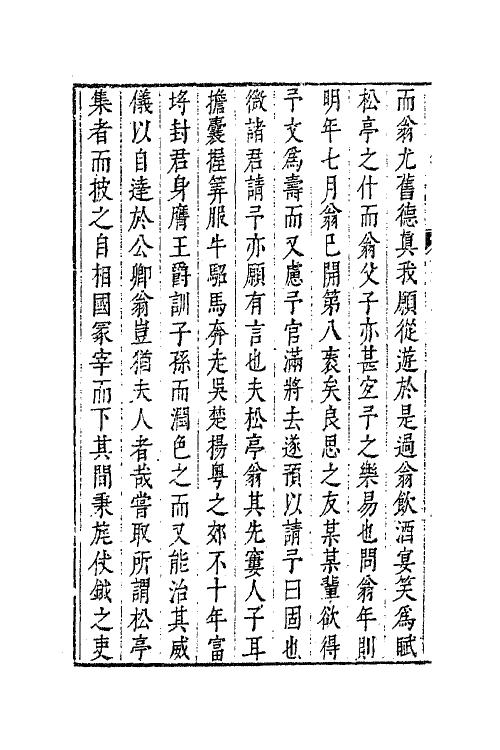 而翁尤舊德真我願從遊於是過翁飲酒宴笑為賦
松亭之什而翁父子亦甚宐予之樂易也問翁年則
明年七月翁已開第八袠矣良思之友某某輩欲得
予文為壽而又慮予官滿將去遂預以請予曰固也
微諸君請予亦願有言也夫松亭翁其先寠人子耳
擔囊握筭服牛駋馬奔走吳楚楊粵之郊不十年富
埓封君身膺王爵訓子孫而潤色之而又能治其威
儀以自達於公卿翁豈猶夫人者哉嘗取所謂松亭
集者而披之自相國冢宰而下其間秉旄伏鉞之吏